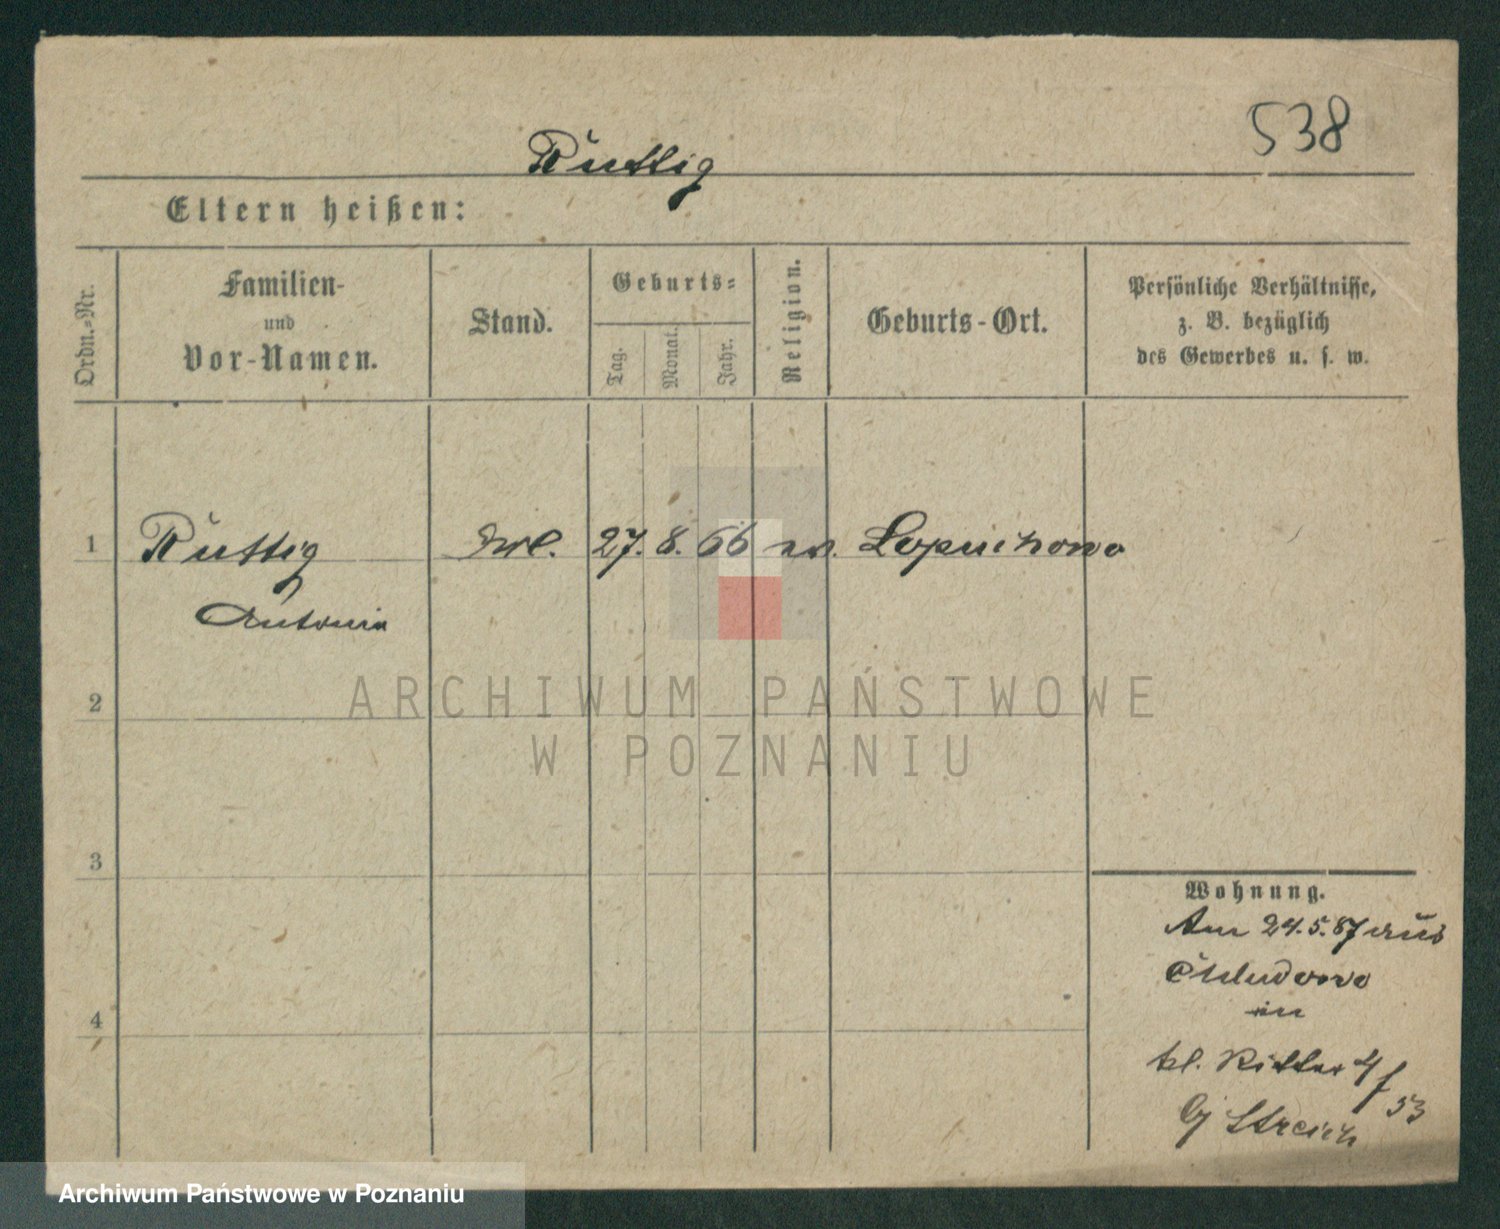 538
Ruttig
Eltern heißen:
Ordn.-Nr.
Familien-
und
Vor-Namen.
Stand.
Geburts-
Tag.
Monat.
Jahr.
Religion.
Geburts-Ort.
Persönliche Verhältnisse,
z. B. bezüglich
des Gewerbes u. s. w.
1 Ruttig 27. 8. 66 ev. Lopuchowo
Antonie
2
3
4
Wohnung.
Am 24.5.87 aus
Chludowo
in
kl. Ritter 4
53
Streich
ARCHIWUM PAŃSTWOWE
W POZNANIU
Archiwum Państwowe w Poznaniu